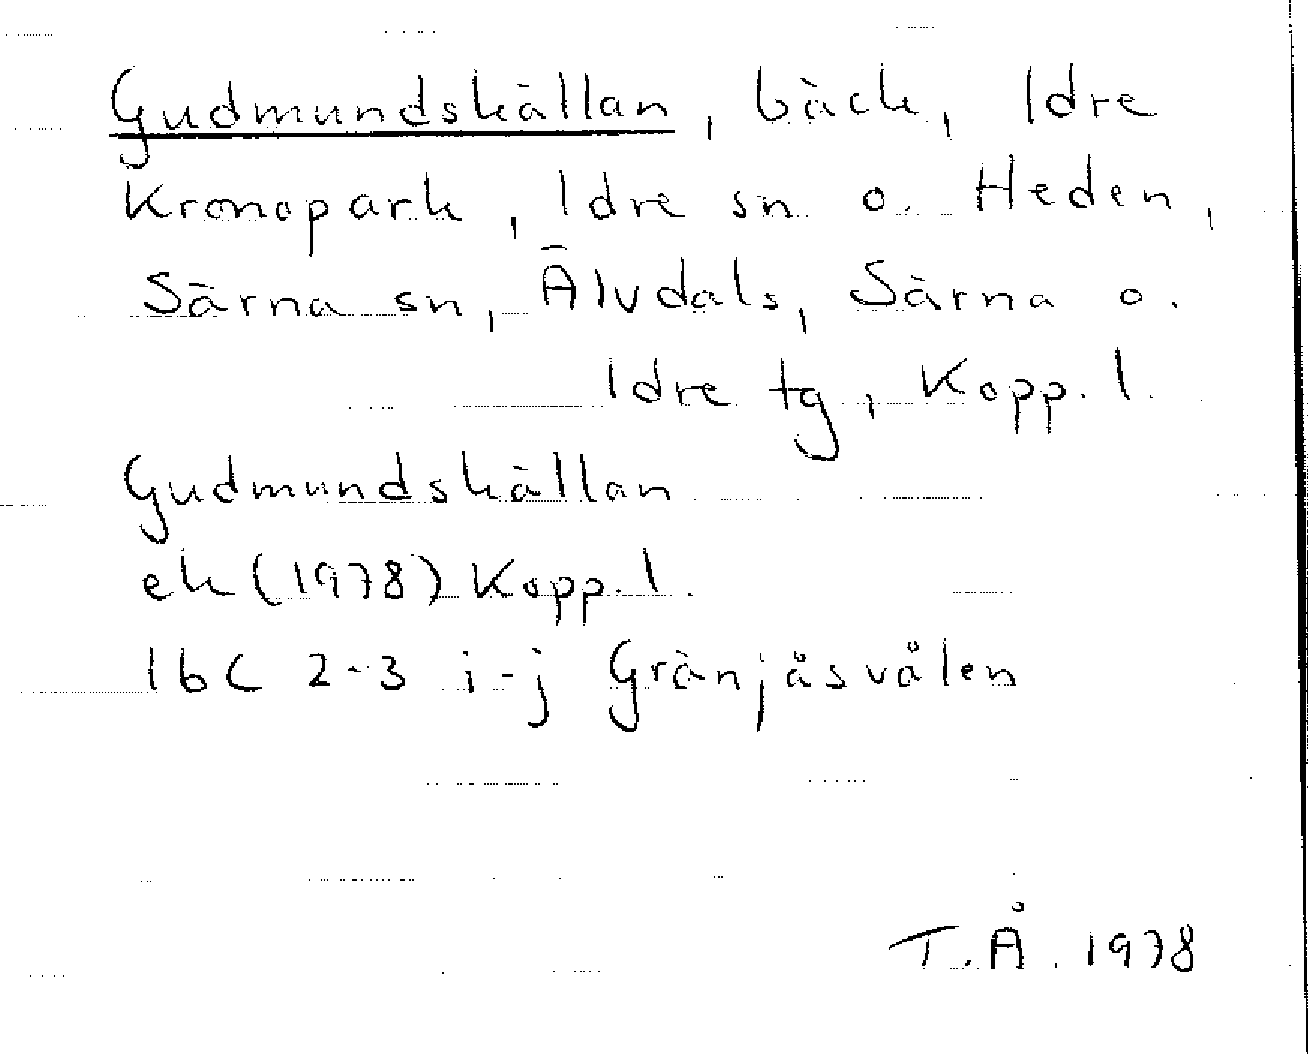 Gudmundskällan, bäck, Idre
Kronopark, Idre sn o. Heden,
Särna sn, Älvdals, Särna o.
Idre tg, Kopp. l.
Gudmundskällan
ek (1978) Kopp. l.
16C 2-3 i-j Gränjåsvålen
T.Å. 1978